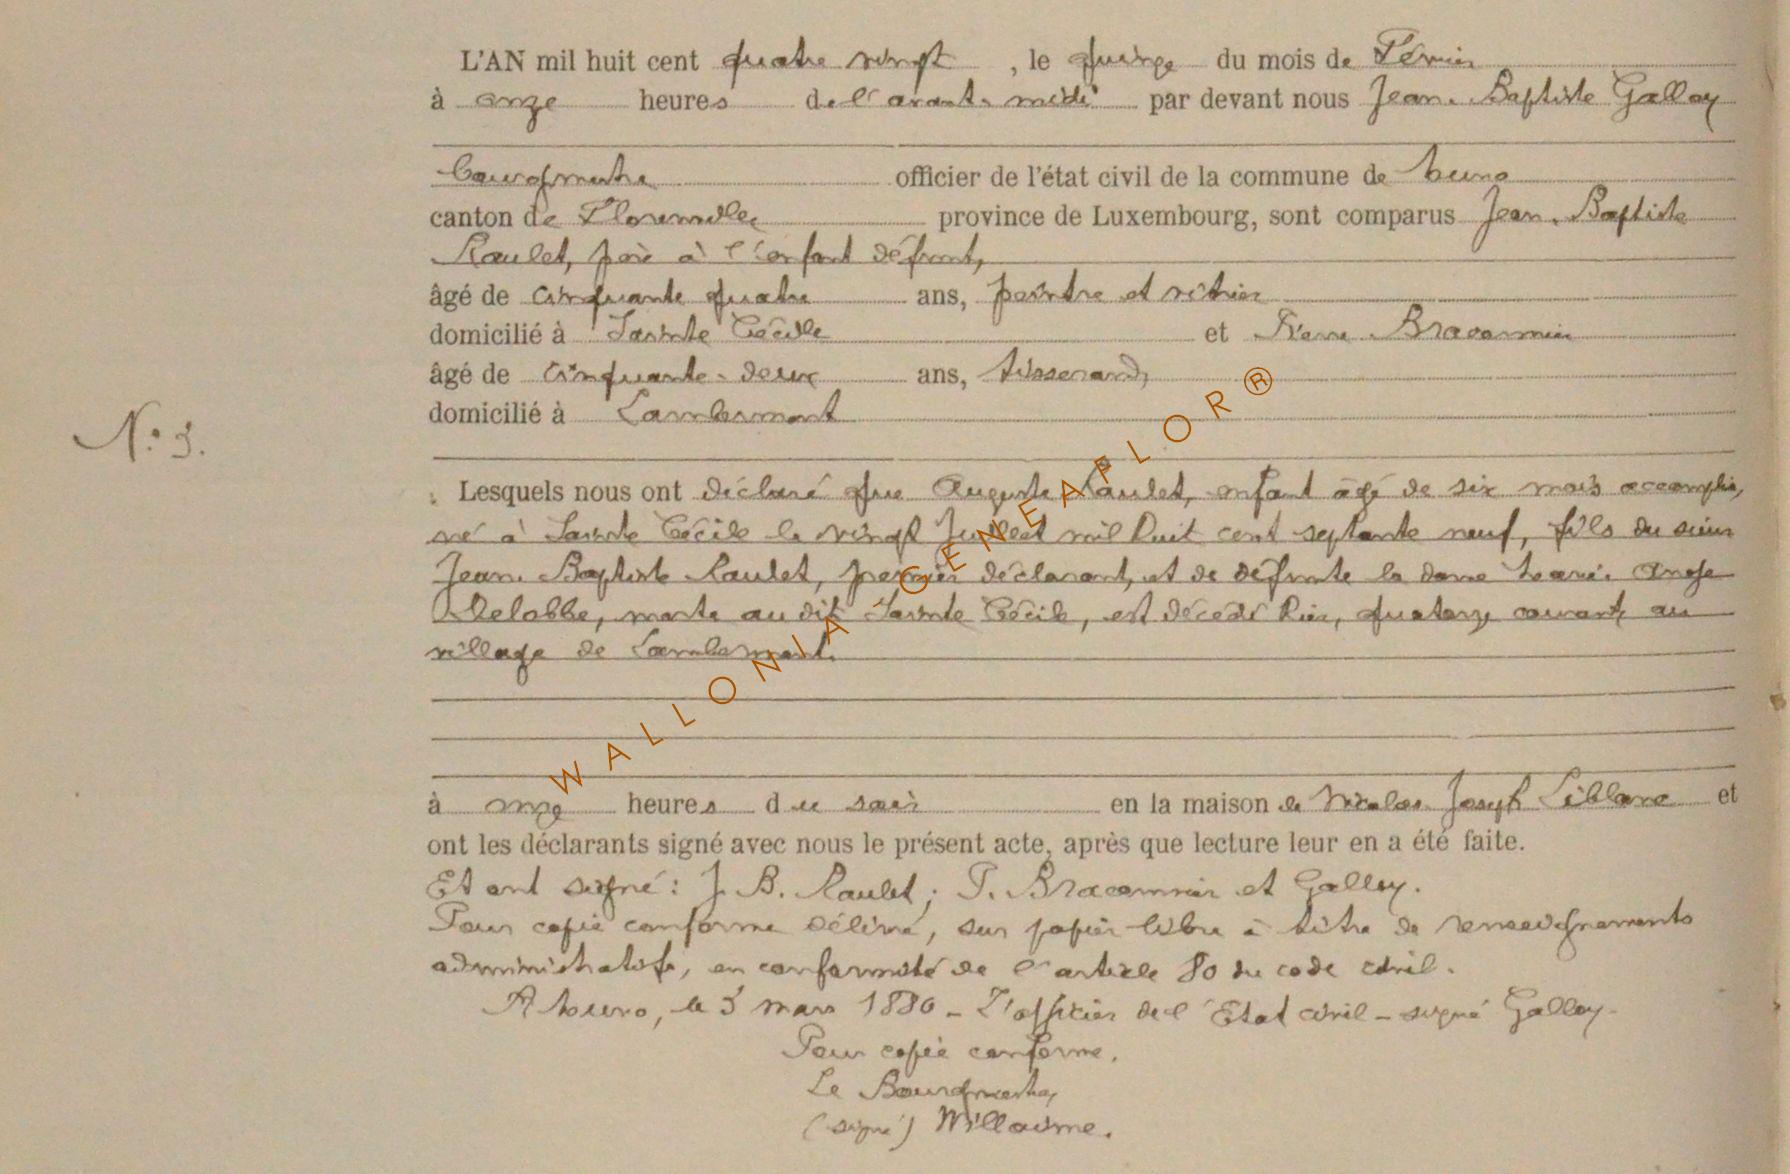 L'AN mil huit cent quatre vingt , le quinze du mois de Février
à onze heures de l'avant-midi par devant nous Jean-Baptiste Galloy
Bourgmestre officier de l'état civil de la commune de Muno
canton de Florenville province de Luxembourg, sont comparus Jean-Baptiste
Raulet, père à l'enfant défunt,
âgé de cinquante quatre ans, peintre et vitrier
domicilié à Sainte Cécile et Pierre Braconnier
âgé de cinquante-deux ans, tisserand,
domicilié à Lambermont
N.° 3.
Lesquels nous ont déclaré que Auguste Raulet, enfant âgé de six mois accomplis,
né à Sainte Cécile le vingt Juillet mil huit cent septante neuf, fils du sieur
Jean-Baptiste Raulet, premier déclarant, et de défunte la dame Marie-Ange
Delobbe, morte au dit Sainte Cécile, est décédé hier, quatorze courant, au
village de Lambermont.
à onze heures du soir en la maison de Nicolas-Joseph Leblanc et
ont les déclarants signé avec nous le présent acte, après que lecture leur en a été faite.
Et ont signé : J. B. Raulet ; P. Braconnier et Galloy.
Pour copie conforme délivré, sur papier libre à titre de renseignements
administratifs, en conformité de l'article 80 du code civil.
A Muno, le 3 mars 1880 - L'officier de l'Etat civil - signé Galloy -
Pour copie conforme.
Le Bourgmestre,
(signé) Willaime.
WALLONIA - GENEAFLOR®